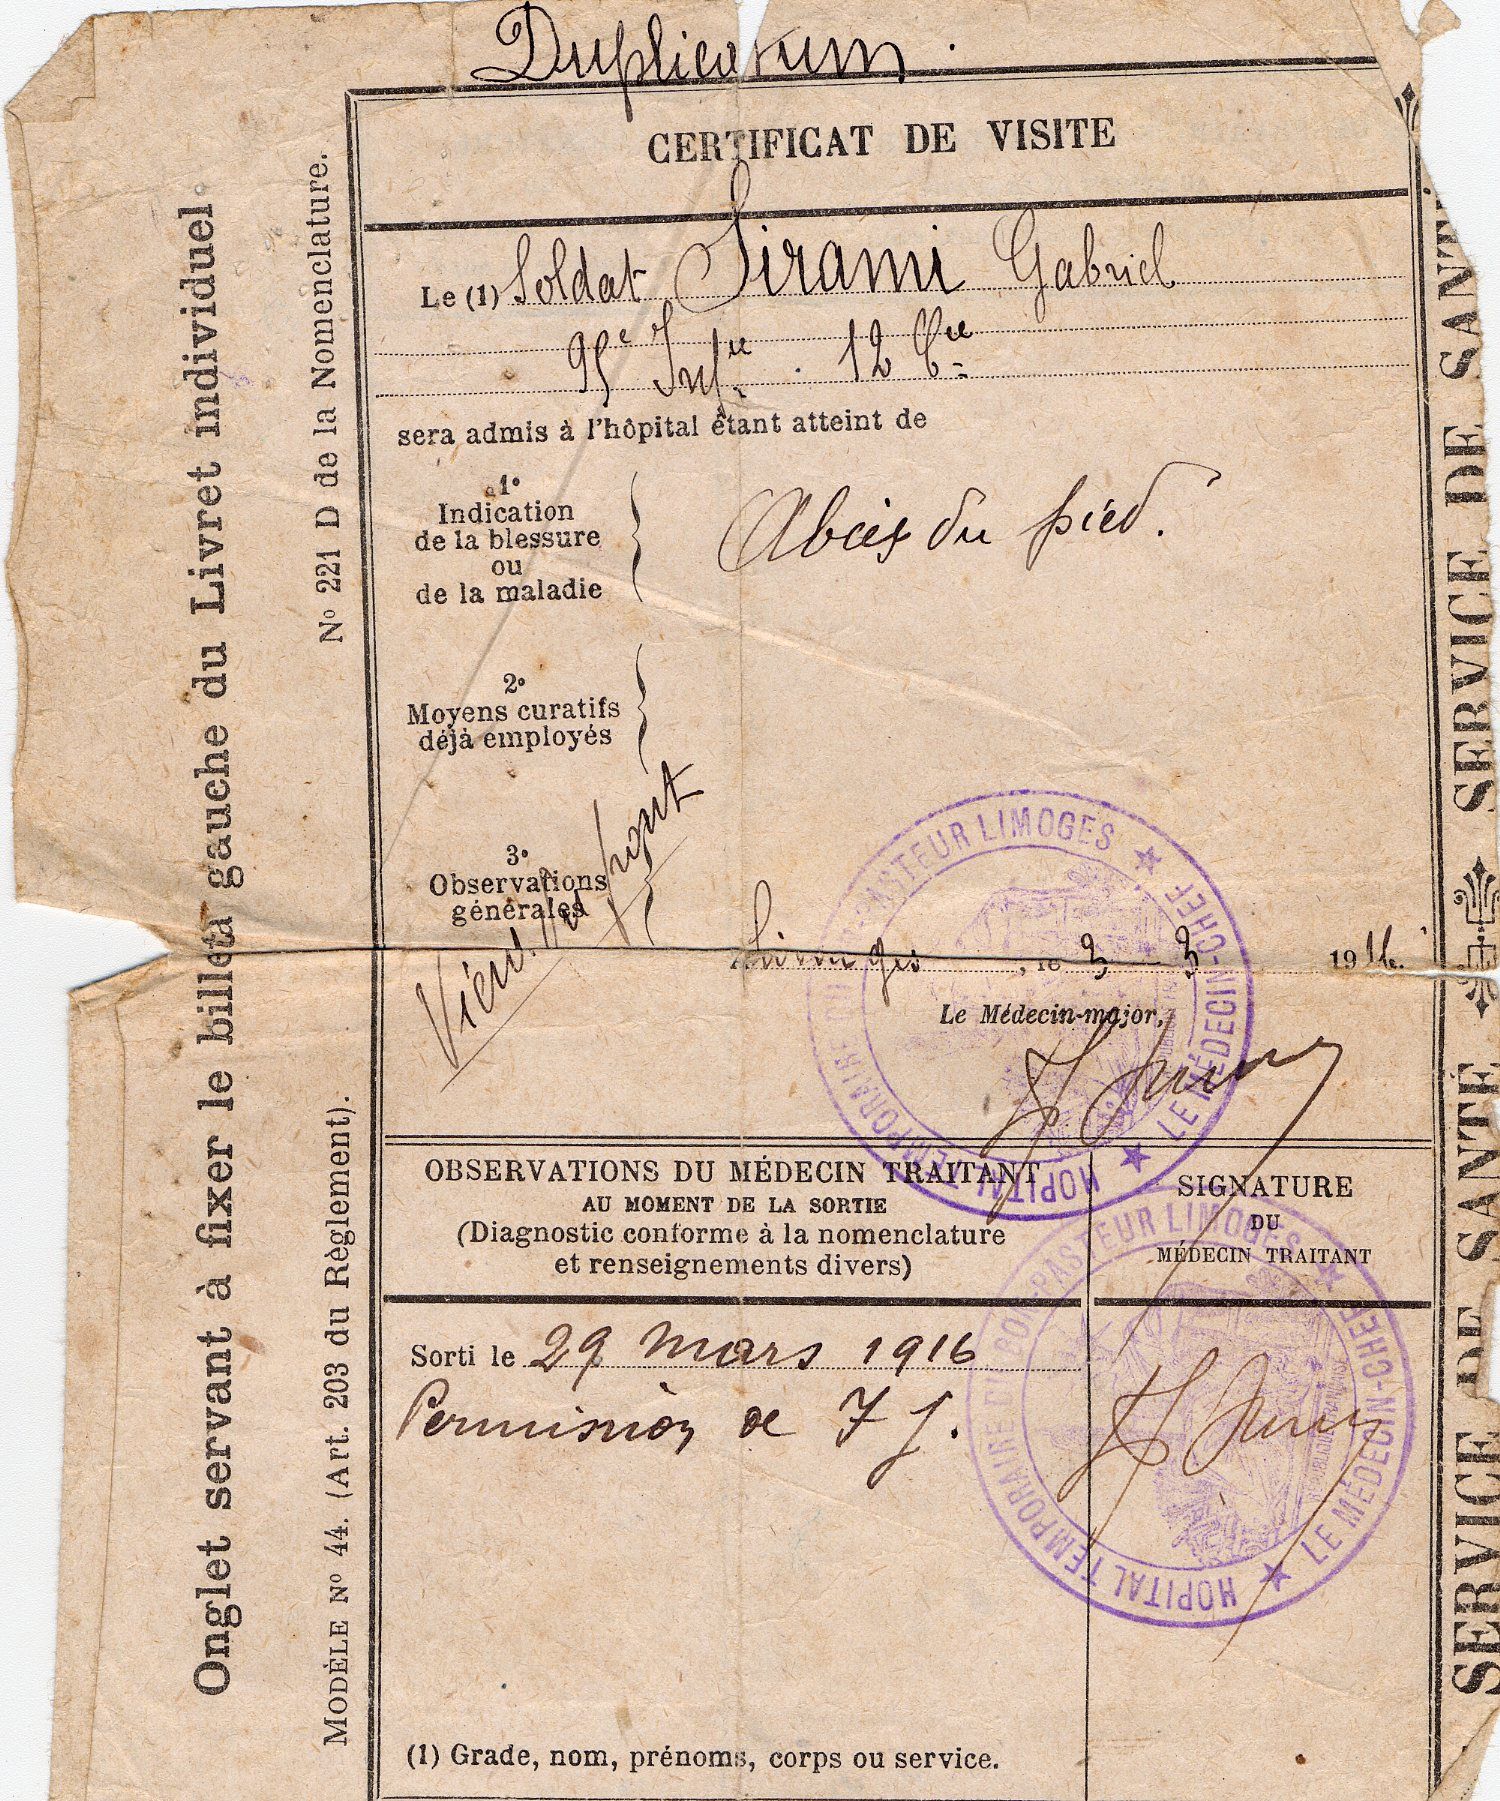 Duplicatum.
CERTIFICAT DE VISITE
Le (1) Soldat Sirami Gabriel
95e Infie . 12 Cie
sera admis à l'hôpital étant atteint de
1°
Indication
de la blessure
ou
de la maladie
Abcès du pied.
2°
Moyens curatifs
déjà employés
3°
Observations
générales
Vient du front
Limoges, le 3 - 3 1916.
Le Médecin-major,
HOPITAL TEMPORAIRE DU PASTEUR LIMOGES ★ LE MÉDECIN-CHEF ★
OBSERVATIONS DU MÉDECIN TRAITANT
AU MOMENT DE LA SORTIE
(Diagnostic conforme à la nomenclature
et renseignements divers)
SIGNATURE
DU
MÉDECIN TRAITANT
Sorti le 29 mars 1916
Permission de 7 j.
HOPITAL TEMPORAIRE DU PASTEUR LIMOGES ★ LE MÉDECIN-CHEF ★
RÉPUBLIQUE FRANÇAISE
(1) Grade, nom, prénoms, corps ou service.
Onglet servant à fixer le billet à gauche du Livret individuel.
MODÈLE N° 44. (Art. 203 du Règlement).
N° 221 D de la Nomenclature.
SERVICE DE SANTÉ
SERVICE DE SANTÉ